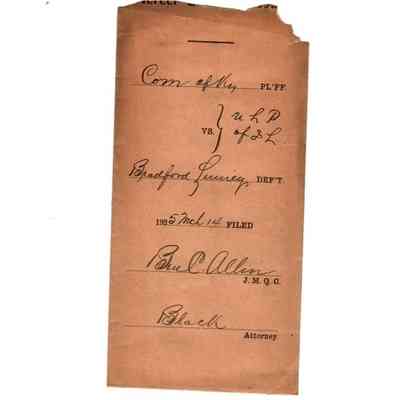 Com of Ky PL'FF.
VS. } U L P
of I L
Bradford Lunney, DEF'T.
1925 Mch 14 FILED
Ben C. Allin
J. M. Q. C.
Black
Attorney.